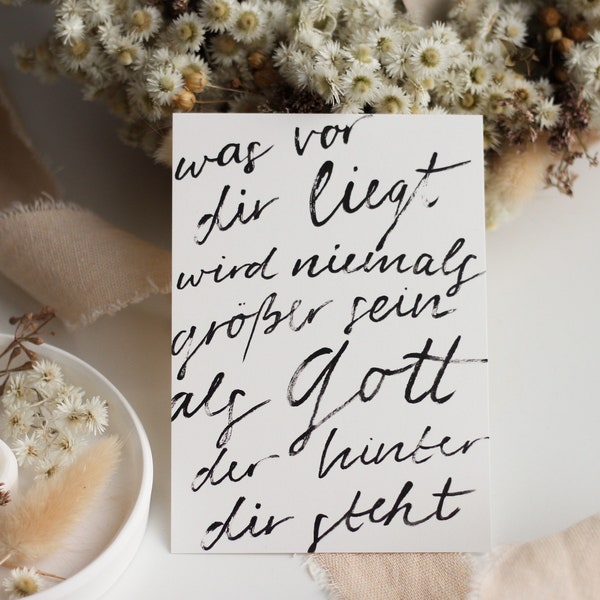 was vor
dir liegt
wird niemals
größer sein
als Gott
der hinter
dir steht